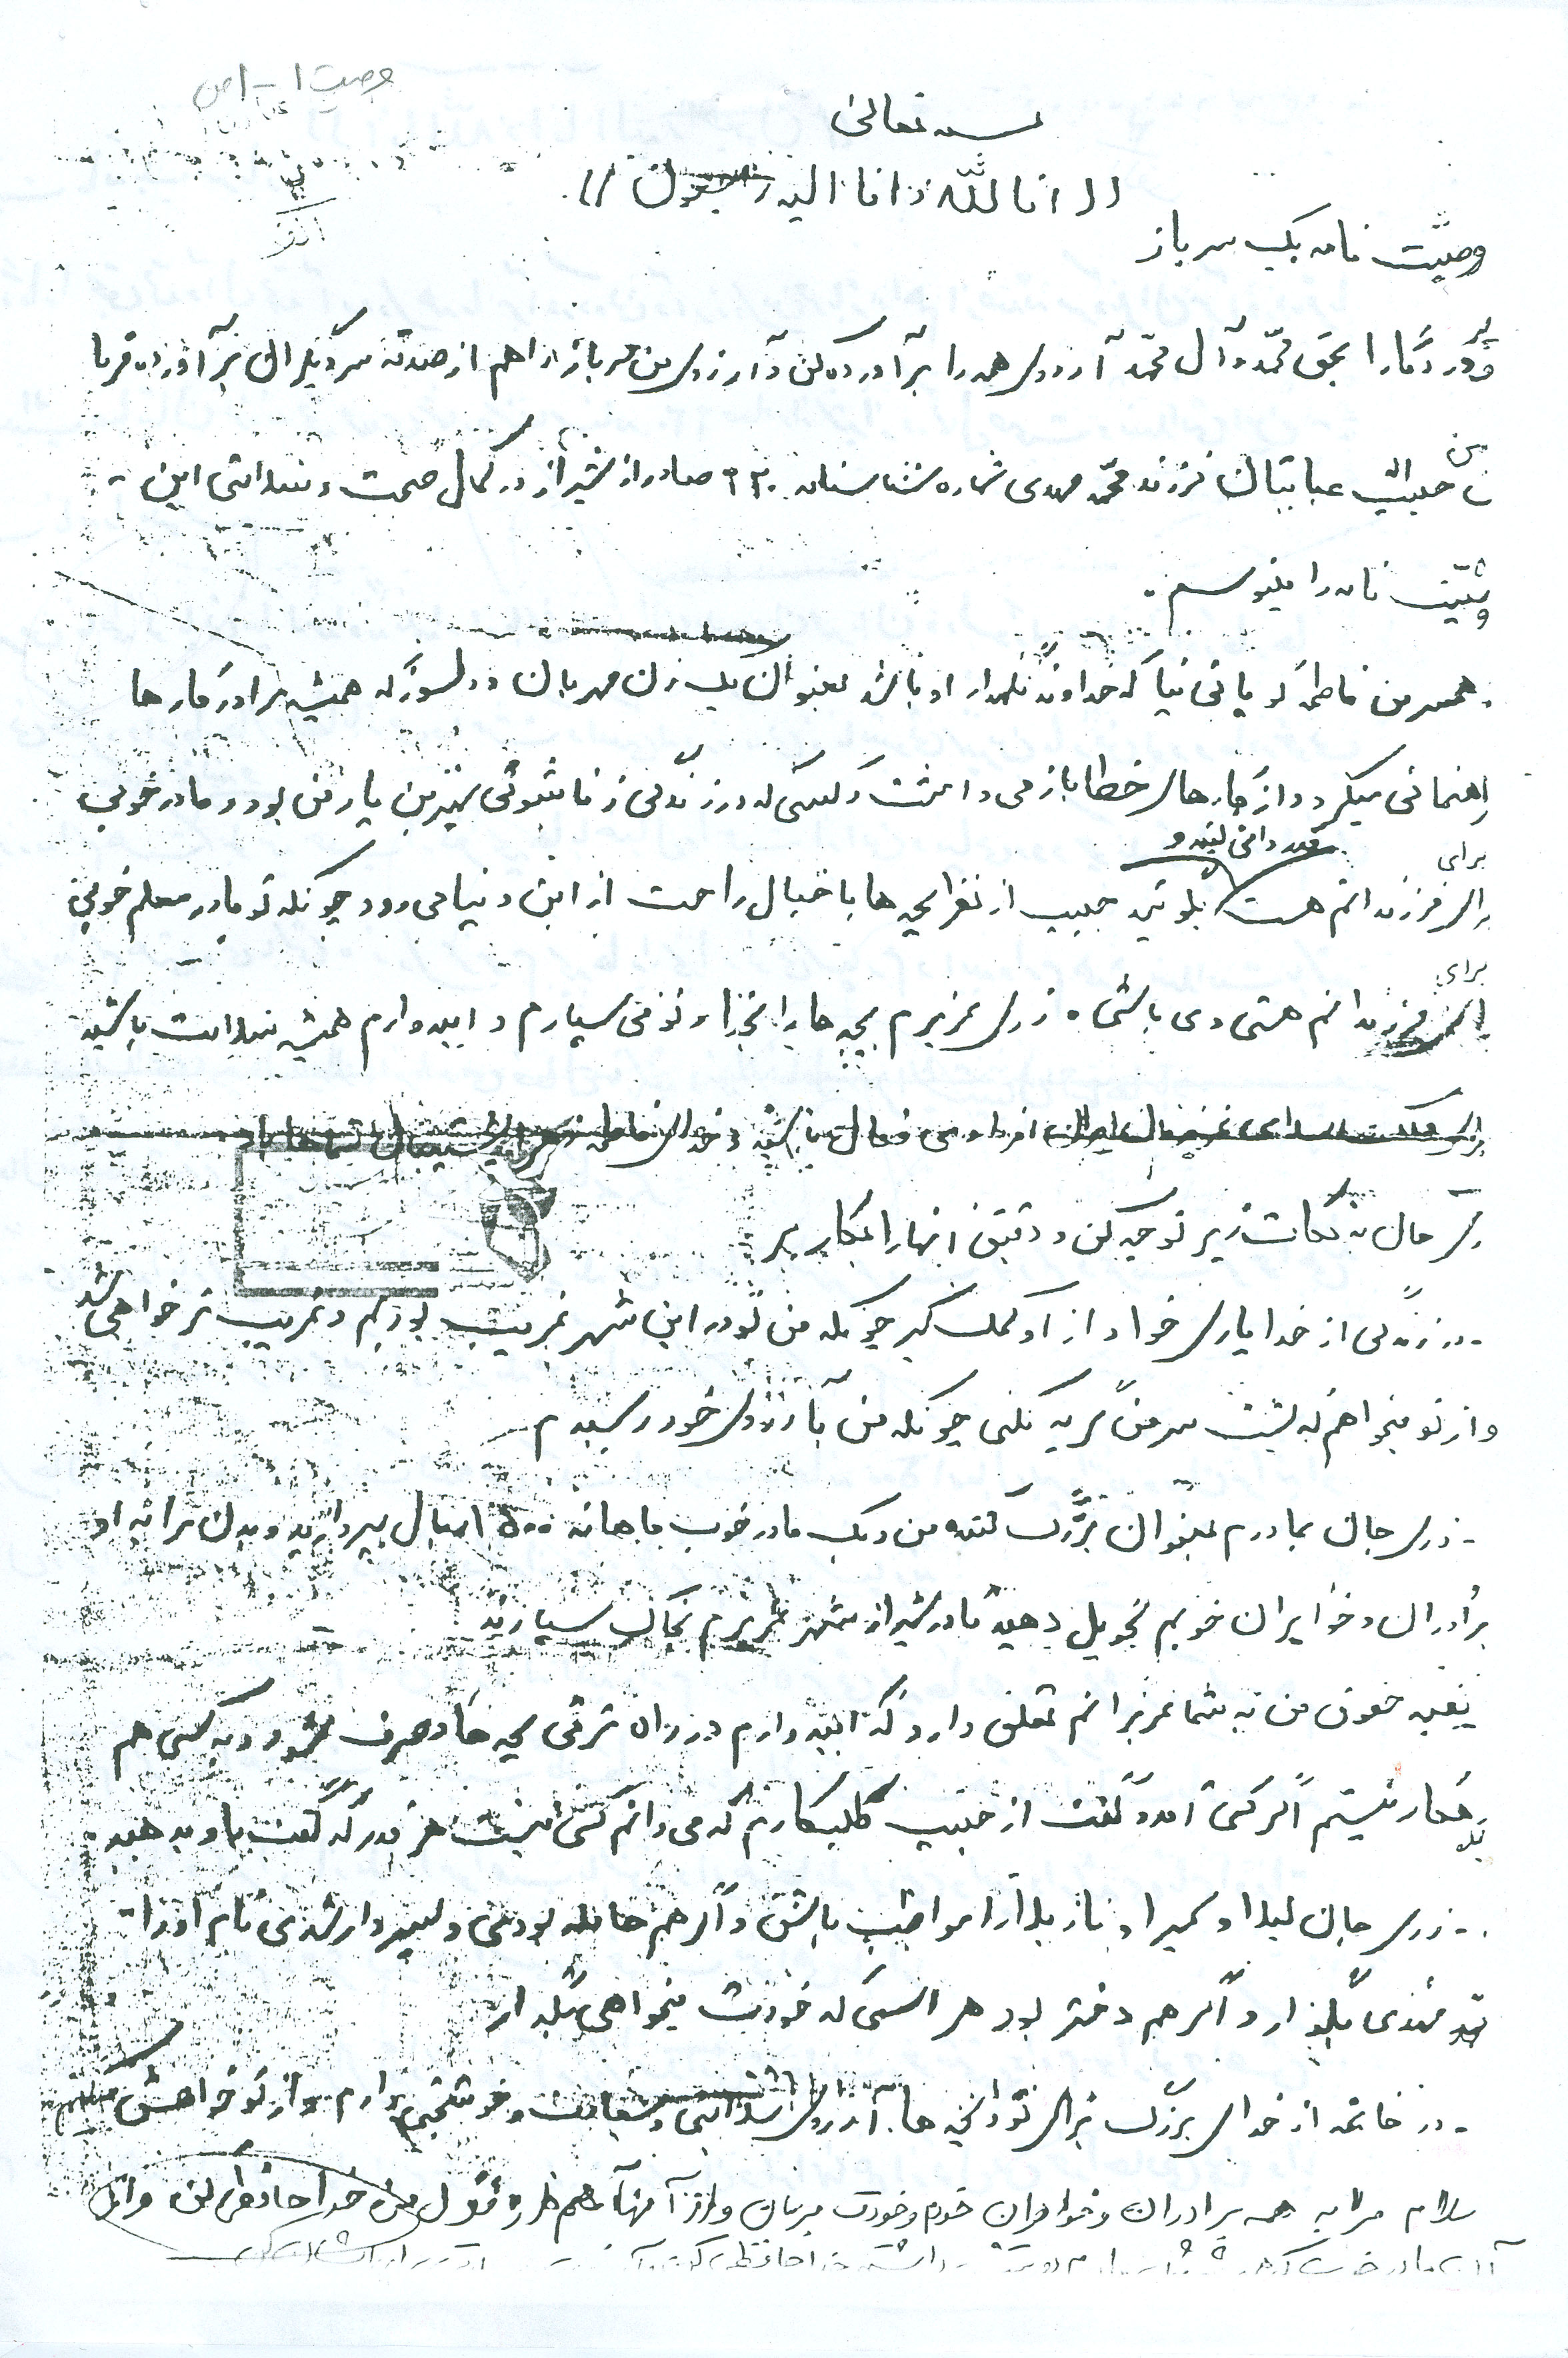 وصیت ۱-۱ ص
بسمه تعالی
(( انا لله و انا الیه راجعون ))
وصیّت نامه یک سرباز
پروردگارا بحق محمّد و آل محمّد آرزوی همه را برآورده کن و آرزوی من سرباز را هم از صدقه سر دیگران برآورده فرما
من حبیب عبایتیان فرزند محمّد مهدی شماره شناسنامه صادر از شیراز در کمال صحت و تندرستی این -
وصیّت نامه را مینویسم .
همسر من فاطمه که خداوند نگهدار او باشد بعنوان یک زن مهربان و دلسوز که همیشه مرا در کارها
راهنمائی میکرد و از کارهای خطا باز می داشت و کسی که در زندگی زناشوئی بهترین یار من بود و مادر خوبی
برای فرزندانم هست قدردانی کنید و بگوئید حبیب از نظر بچه ها با خیال راحت از این دنیا می رود چونکه تو مادر و معلم خوبی
برای فرزندانم هستی و می باشی . زری عزیزم بچه ها را بخدا و تو می سپارم و امیدوارم همیشه تندرست باشید
برای مملکت اسلامی عزیزمان ایران افرادی فعال باشید و خدای فاطمه زهرا پشتیبان شماها باد
زری جان به نکات زیر توجه کن و دقیق انها را بکار بر
- در زندگی از خدا یاری خواه و از او کمک گیر چونکه من و تو در این شهر غریب بودیم و غریب تر خواهی شد
و از تو میخواهم که پشت سر من گریه نکنی چونکه من بآرزوی خود رسیدم
- زری جان بمادرم بعنوان بزرگ کننده من و یک مادر خوب ماهانه ۱۵۰۰ ریال بپردازید و بدن مرا به او
برادران و خواهران خوبم تحویل دهید تا در شیراز شهر عزیزم بخاک سپارند
بقیه حقوق من به شما عزیزانم تعلق دارد که امیدوارم در راه ترقی بچه ها صرف شود و به کسی هم
بدهکار نیستم اگر کسی آمد و گفت از حبیب طلبکارم که می دانم کسی نیست هر قدر که گفت باو بدهید .
- زری جان لیلا و سمیرا و نازیلا را مواظب باش و اگر هم حامله بودی و پسر دار شدی نام او را
مهدی بگذار و اگر هم دختر بود هر اسمی که خودت میخواهی بگذار
- در خاتمه از خدای بزرگ برای تو و بچه ها آرزوی سلامتی و سعادت و خوشبختی دارم و از تو خواهش میکنم
سلام مرا به همه برادران و خواهران خودم و خودت برسان و از آنها هم از قول من خدا حافظی کن